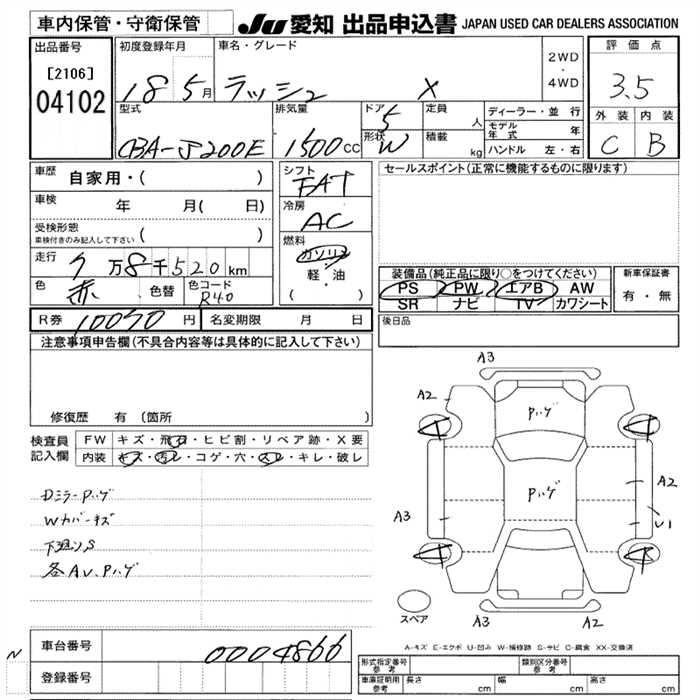 車内保管・守衛保管
JU 愛知 出品申込書 JAPAN USED CAR DEALERS ASSOCIATION
出品番号
[2106]
04102
初度登録年月
18 5月
車名・グレード
ラッシュ X
2WD
・
4WD
評価点
3.5
外装 内装
C B
型式
CBA-J200E
排気量
1500cc
ドア
5
形状
W
定員
人
積載
kg
ディーラー・並行
モデル年式 年
ハンドル 左・右
車歴
自家用・( )
車検
年 月( 日)
受検形態
車検付きのみ記入して下さい
( )
走行
7万8千520km
色
赤
色替
色コード
R40
シフト
FAT
冷房
AC
燃料
ガソリン
軽・油
( )
セールスポイント(正常に機能するものに限ります)
装備品(純正品に限り○をつけてください)
PS PW エアB AW
SR ナビ TV カワシート
新車保証書
有・無
後日品
R券 10070円
名変期限 月 日
注意事項申告欄(不具合内容等は具体的に記入して下さい)
修復歴 有 (箇所 )
検査員
記入欄
FW キズ・飛石・ヒビ割・リペア跡・X要
内装 キズ・汚レ・コゲ・穴・スレ・キレ・破レ
Dミラー Pハゲ
Wカバーキズ
下廻りS
各AU、Pハゲ
A3
A2
Pハゲ
Pハゲ
A2
A3
U1
スペア
A3
A2
A-キズ E-エクボ U-凹み W-補修跡 S-サビ C-腐食 XX-交換済
N
車台番号
0004866
登録番号
形式指定番号
参考
類別区分番号
参考
車庫証明用
参考
長さ cm
幅 cm
高さ cm